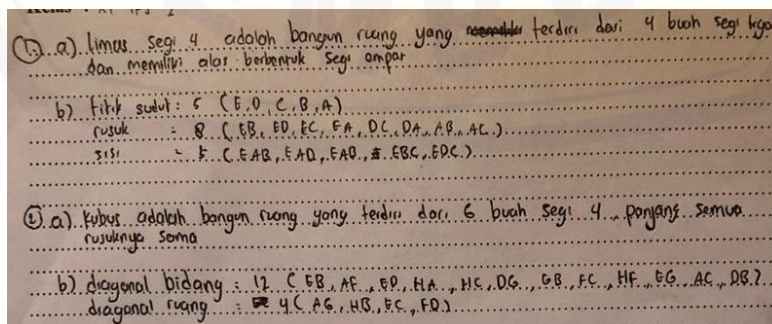 Kelas : XI IPS 2
1. a) limas segi 4 adalah bangun ruang yang terdiri dari 4 buah segi tiga
dan memiliki alas berbentuk segi ampat
b) titik sudut : 5 (E, D, C, B, A)
rusuk : 8 (EB, ED, EC, EA, DC, DA, AB, AC)
sisi : 5 (EAB, EAD, EAB, EBC, EDC)
2. a) kubus adalah bangun ruang yang terdiri dari 6 buah segi 4, panjang semua
rusuknya sama
b) diagonal bidang : 12 (EB, AF, ED, HA, HC, DG, GB, FC, HF, EG, AC, DB)
diagonal ruang : 4 (AG, HB, EC, FD)